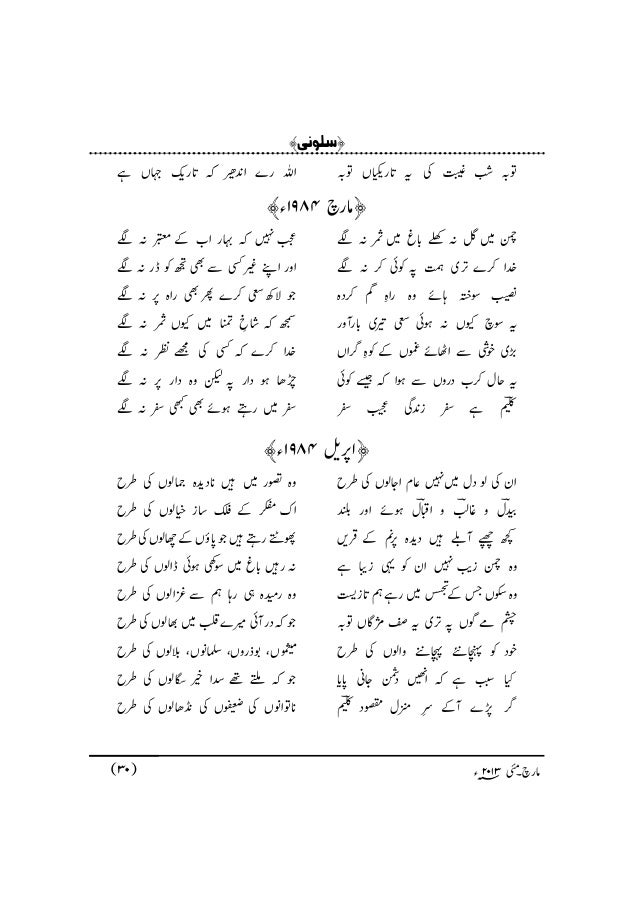 ﴿سلونی﴾
توبہ شب غیبت کی یہ تاریکیاں توبہ اللہ رے اندھیر کہ تاریک جہاں ہے
﴿مارچ ۱۹۸۴ء﴾
چمن میں گل نہ کھلے باغ میں ثمر نہ لگے عجب نہیں کہ بہار اب کے معتبر نہ لگے
خدا کرے تری ہمت پہ کوئی کر نہ لگے اور اپنے غیر کسی سے بھی تجھ کو ڈر نہ لگے
نصیب سوختہ ہائے وہ راہِ گم کردہ جو لاکھ سعی کرے پھر بھی راہ پر نہ لگے
یہ سوچ کیوں نہ ہوئی سعی تیری بارآور سمجھ کہ شاخِ تمنا میں کیوں ثمر نہ لگے
بڑی خوشی سے اٹھائے غموں کے کوہِ گراں خدا کرے کہ کسی کی مجھے نظر نہ لگے
یہ حال کرب دروں سے ہوا کہ جیسے کوئی چڑھا ہو دار پہ لیکن وہ دار پر نہ لگے
کلیمؔ ہے سفر زندگی عجیب سفر سفر میں رہتے ہوئے بھی کبھی سفر نہ لگے
﴿اپریل ۱۹۸۴ء﴾
ان کی لو دل میں نہیں عام اجالوں کی طرح وہ تصور میں ہیں نادیدہ جمالوں کی طرح
بیدلؔ و غالبؔ و اقبالؔ ہوئے اور بلند اک مفکر کے فلک ساز خیالوں کی طرح
کچھ چھپے آبلے ہیں دیدہ پرنم کے قریں پھوٹتے رہتے ہیں جو پاؤں کے چھالوں کی طرح
وہ چمن زیب نہیں ان کو یہی زیبا ہے نہ رہیں باغ میں سوکھی ہوئی ڈالوں کی طرح
وہ سکوں جس کے تجسس میں رہے ہم تازیست وہ رمیدہ ہی رہا ہم سے غزالوں کی طرح
چشم مے گوں پہ تری یہ صف مژگاں توبہ جو کہ در آئی میرے قلب میں بھالوں کی طرح
خود کو پہنچانئے پہچاننے والوں کی طرح میثموں، بوذروں، سلمانوں، بلالوں کی طرح
کیا سبب ہے کہ انھیں دشمن جانی پایا جو کہ ملتے تھے سدا خیر سگالوں کی طرح
گر پڑے آکے سرِ منزل مقصود کلیمؔ ناتوانوں کی ضعیفوں کی نڈھالوں کی طرح
مارچ۔مئی ۲۰۱۳ء (۳۰)